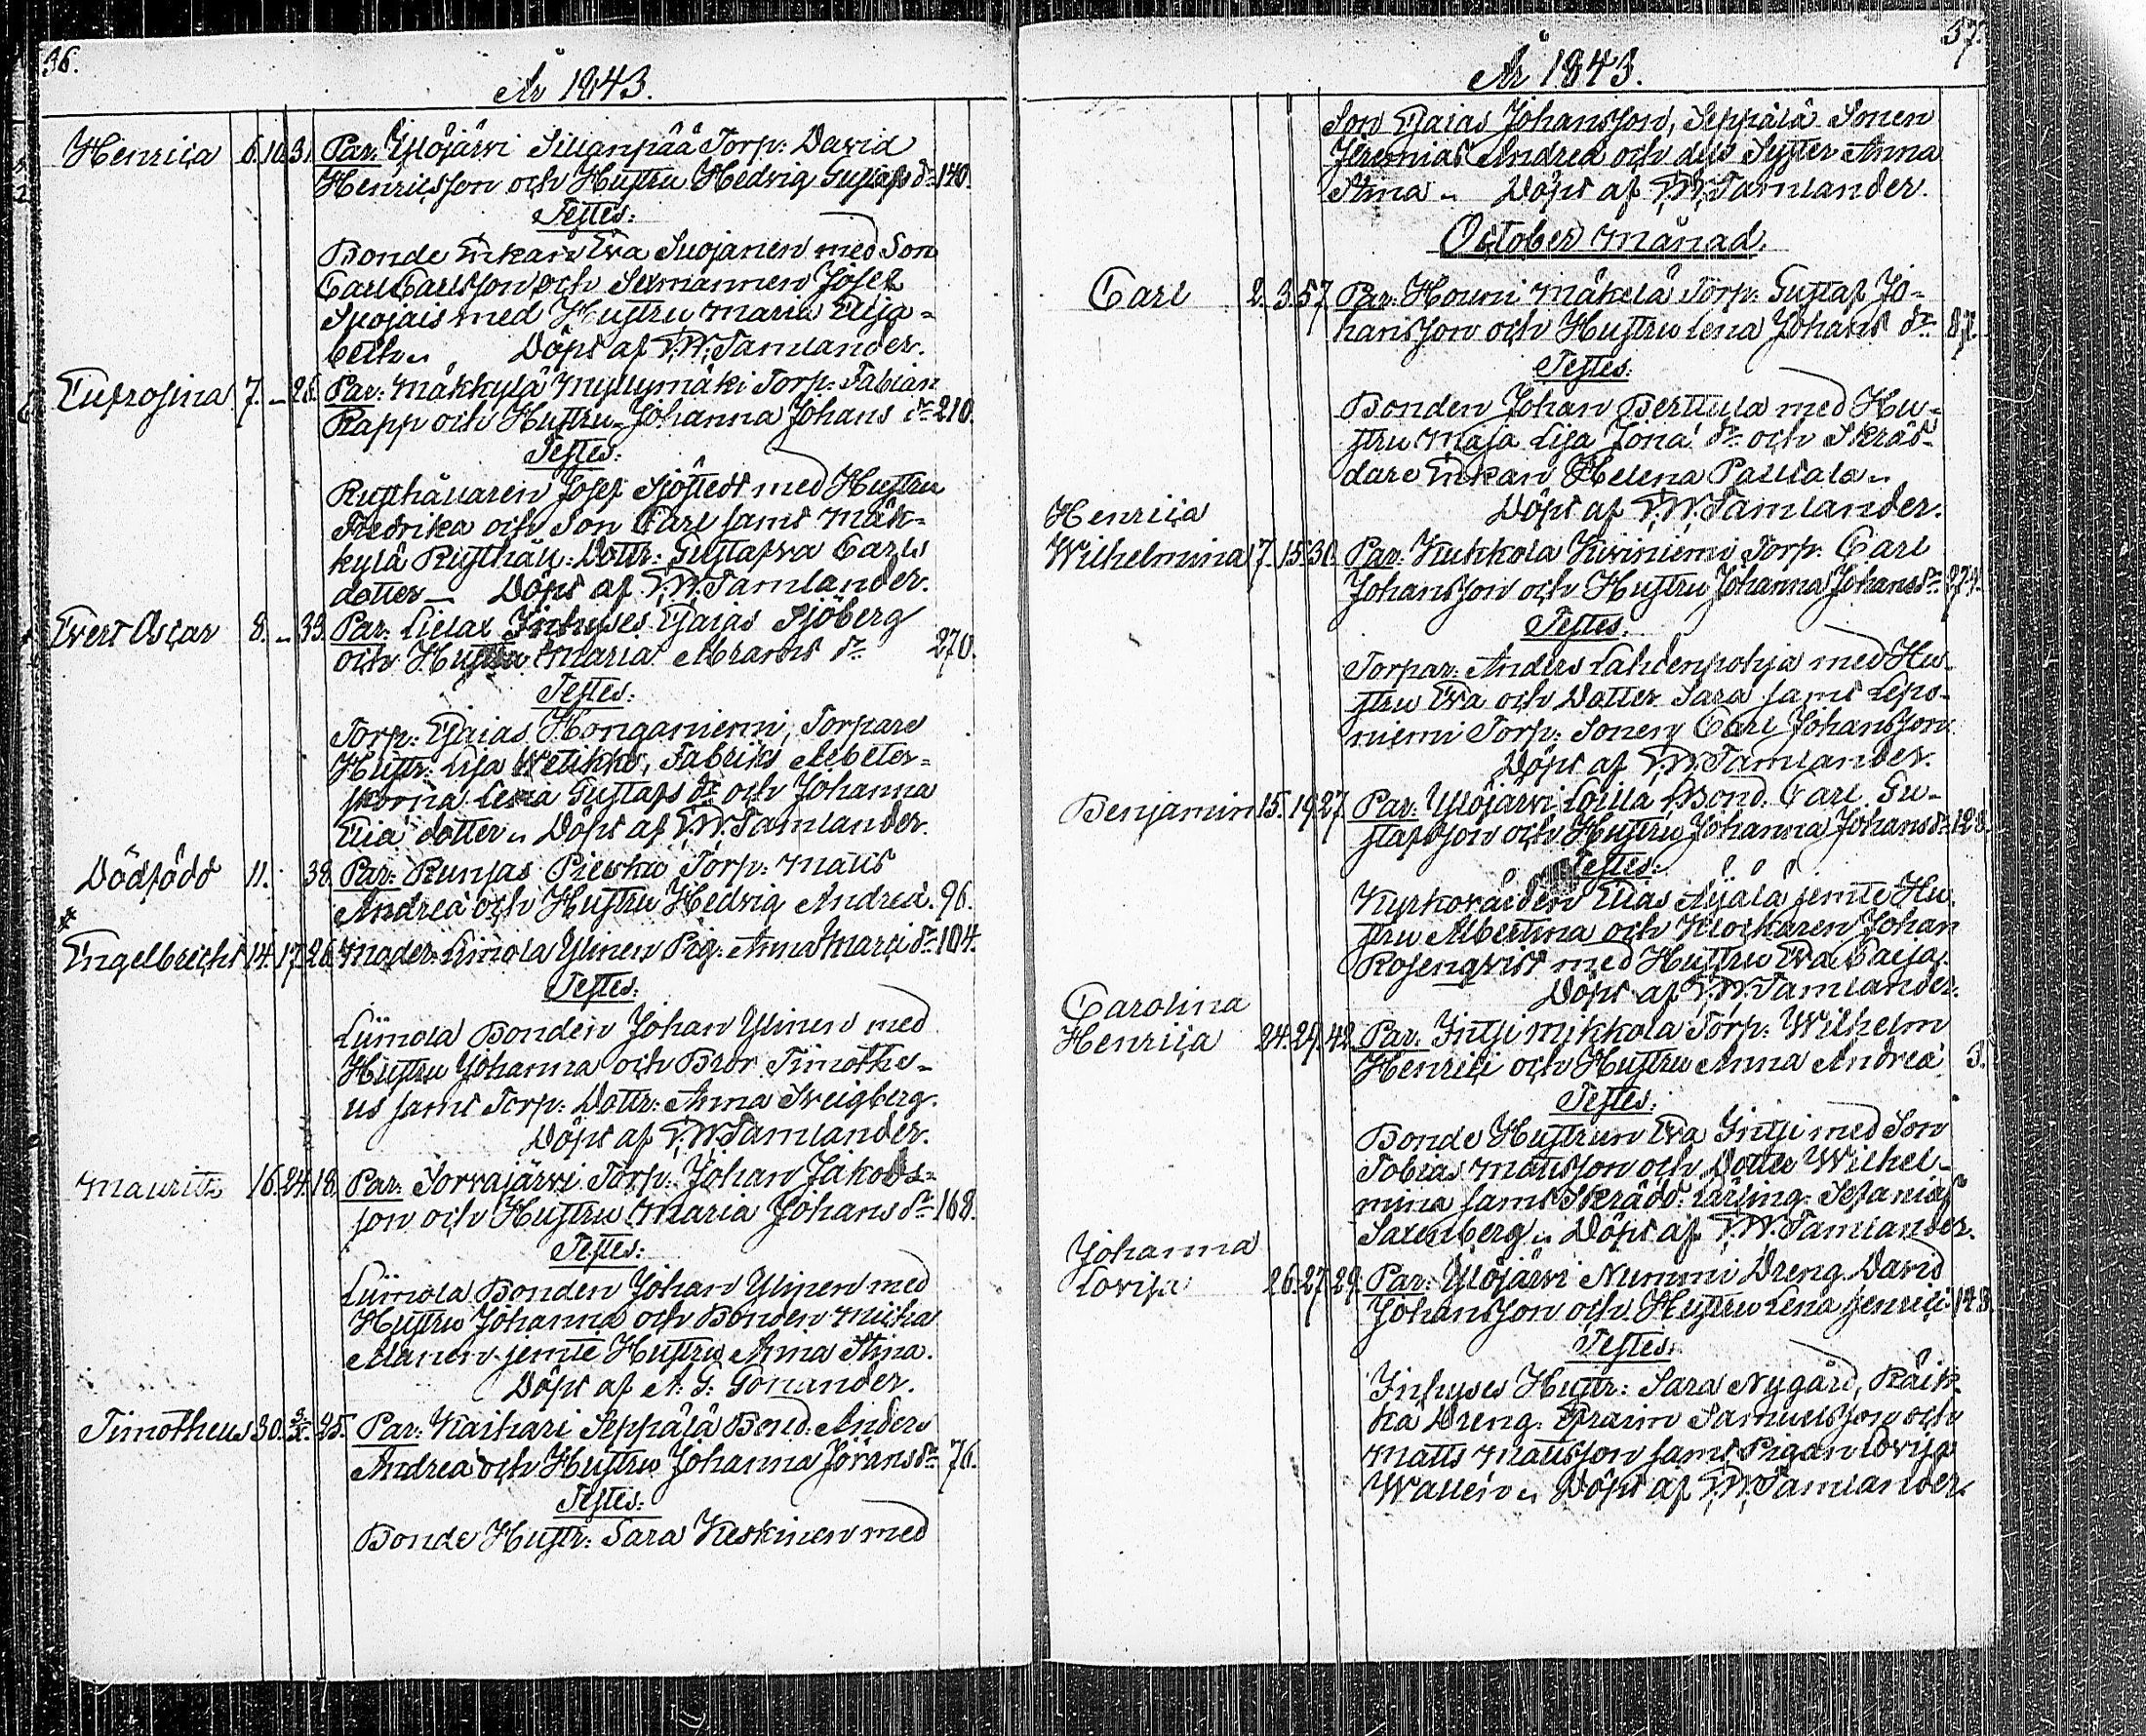 36.
År 1843.
Henrica 6. 10. 31. Par. Ylöjärvi Sillanpää Torp: David
Henricsson och Hustru Hedvig Gustafs dr 140.
Testes:
Bonde Enkan Eva Suojanen med Son
Carl Carlsson och Sexmannen Josef
med Hustru Maria Elisa-
beth.. Döpt af F.W. Tamlander.
Eufrosina 7. – 28. Par: Mäkkylä Myllymäki Torp: Fabian
Rapp och Hustru Johanna Johans dr 210.
Testes:
Rusthållaren Josef Sjöstedt med Hustru
Fredrika och Son Carl samt Mäk-
kylä Rusthåll: Dottr: Gustafva Carls
dotter – Döpt af F.W. Tamlander.
Evert Oscar 8. – 33. Par: Lielax Inhyses Esaias Sjöberg
och Hustru Maria Abrams dr 270.
Testes:
Torp: Esaias Honganiemi, Torpare
Hustr: Lisa Wetikko, Fabriks Arbeter-
skorna Lena Gustafs dr och Johanna
Elia dotter.. Döpt af F.W. Tamlander.
Dödfödd 11. 38. Par: Runsas Torp: Matts
Andreä och Hustru Hedvig Andreä. 96.
Engelbrecht 14. 17. 26. Moder: Limola Ylinen Pig: Anna Marci dr 104.
Testes:
Liimola Bonden Johan Ylinen med
Hustru Johanna och Bror Timothe-
us samt Torp: Dottr: Anna Sveigberg.
Döpt af F.W. Tamlander.
Mauritz 16. 24. 18. Par: Sorvajärvi Torp: Johan Jakobs-
son och Hustru Maria Johans dr 168.
Testes:
Liimola Bonden Johan Ylinen med
Hustru Johanna och Bonden Miika
Alanen jemte Hustru Anna Stina.
Döpt af A. G. Gonander.
Timotheus 30. 3/X. 25. Par: Kaihari Seppälä Bond: Anders
Andreä och Hustru Johanna Görans dr 76.
Testes:
Bonde Hustr: Sara Keskinen med
37.
År 1843.
Son Esaias Johansson, Seppälä Sonen
Jeremias Andreä och dess Syster Anna
Stina.. Döpt af F.W. Tamlander.
October Månad.
Carl 2. 3. 57. Par: Mäkelä Torp: Gustaf Jo-
hansson och Hustru Lena Johans dr 87.
Testes:
Bonden Johan Berttula med Hu-
stru Maja Lisa Jona dr och Skräd-
dare Enkan Helena Pallsala..
Döpt af F.W. Tamlander.
Henrica
Wilhelmina 7. 15. 30. Par: Kukkola Kiviniemi Torp: Carl
Johansson och Hustru Johanna Johans dr 274.
Testes.
Torpar: Anders Lahdenpohja med Hu-
stru Eva och Dotter Sara samt Lepo-
niemi Torp: Sonen Carl Johansson
Döpt af F.W. Tamlander.
Benjamin 15. 19. 27. Par: Ylöjärvi Loilla Bond. Carl Gu-
stafsson och Hustru Johanna Johans dr 128.
Testes:
Kyrkovärden Elias Äijälä jemte Hu-
stru Albertina och Klockaren Johan
Rosenqvist med Hustru Eva Caisa.
Döpt af F.W. Tamlander.
Carolina
Henrica 24. 29. 42. Par: Yntji Mikkola Torp: Wilhelm
Henrici och Hustru Anna Andreä 3.
Testes:
Bonde Hustrun Eva Yntji med Son
Tobias Mattsson och Dotter Wilhel-
mina samt Skrädd: Lärling: Sefanias
Saxenberg.. Döpt af F.W. Tamlander.
Johanna
Lovisa 26. 27. 29. Par: Ylöjärvi Nummi Dreng David
Johansson och Hustru Lena Henrici 148.
Testes:
Inhyses Hustr: Sara Nygård, Räik-
kä Dreng: Efraim Samuelsson och
Matts Mattsson samt Pigan Lovisa
Wallén.. Döpt af F.W. Tamlander